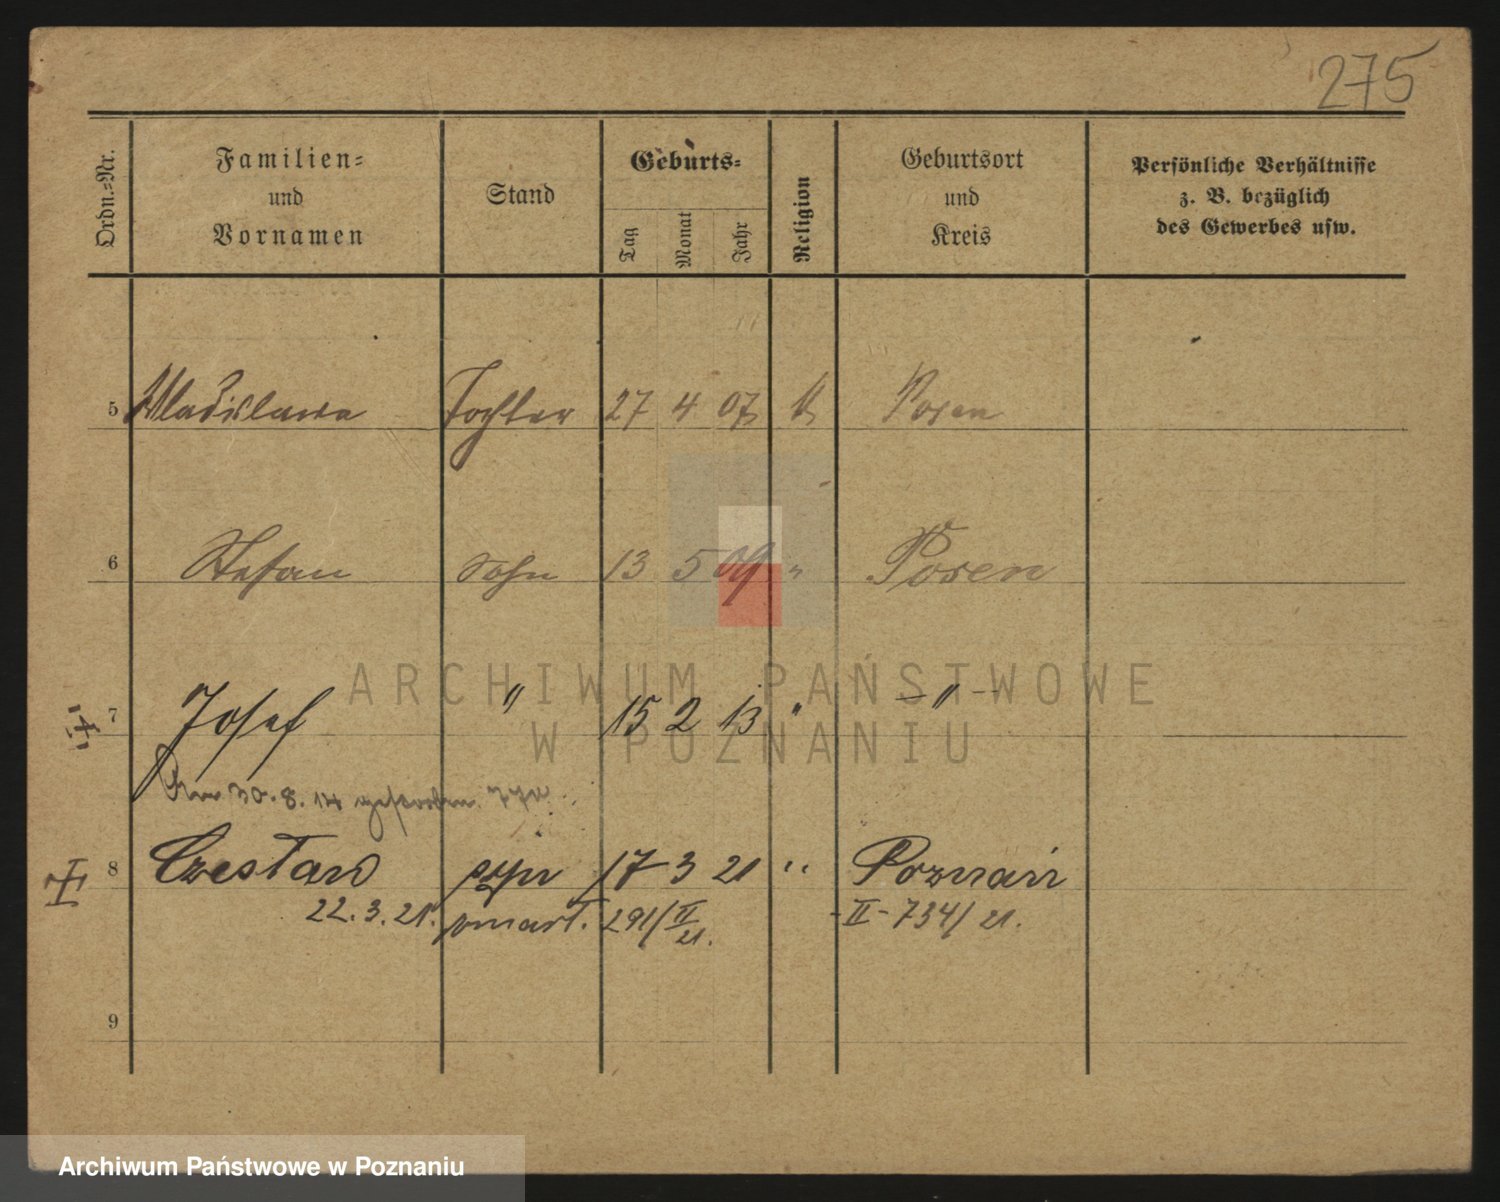 275
Ordn.=Nr.
Familien=
und
Vornamen
Stand
Geburts=
Tag
Monat
Jahr
Religion
Geburtsort
und
Kreis
Persönliche Verhältnisse
z. B. bezüglich
des Gewerbes usw.
5 Wladislawa Tochter 27 4 07 k Posen
6 Stefan Sohn 13 5 09 " Posen
7 Josef " 15 2 13 " - " -
Am 30. 8. 14 gestorben
8 Czesław syn 17 3 21 " Poznań
22. 3. 21. zmarł. 291/II 21. -II- 734/21.
9
ARCHIWUM PAŃSTWOWE
W POZNANIU
Archiwum Państwowe w Poznaniu